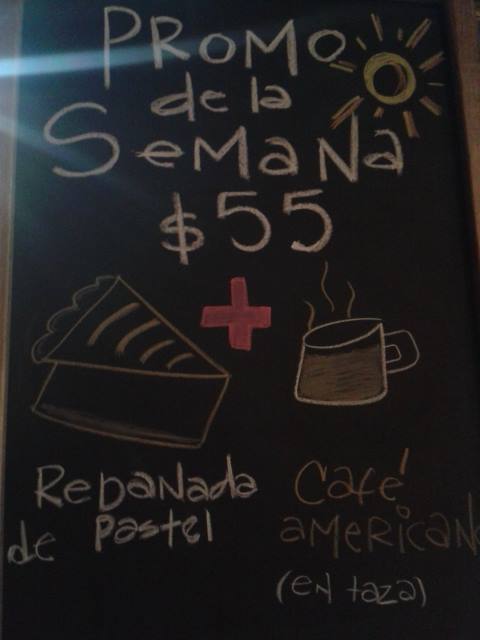 PROMO
de la
SEMaNa
$55
+
RebaNada
de Pastel
Café
aMERICaN
(EN taza)